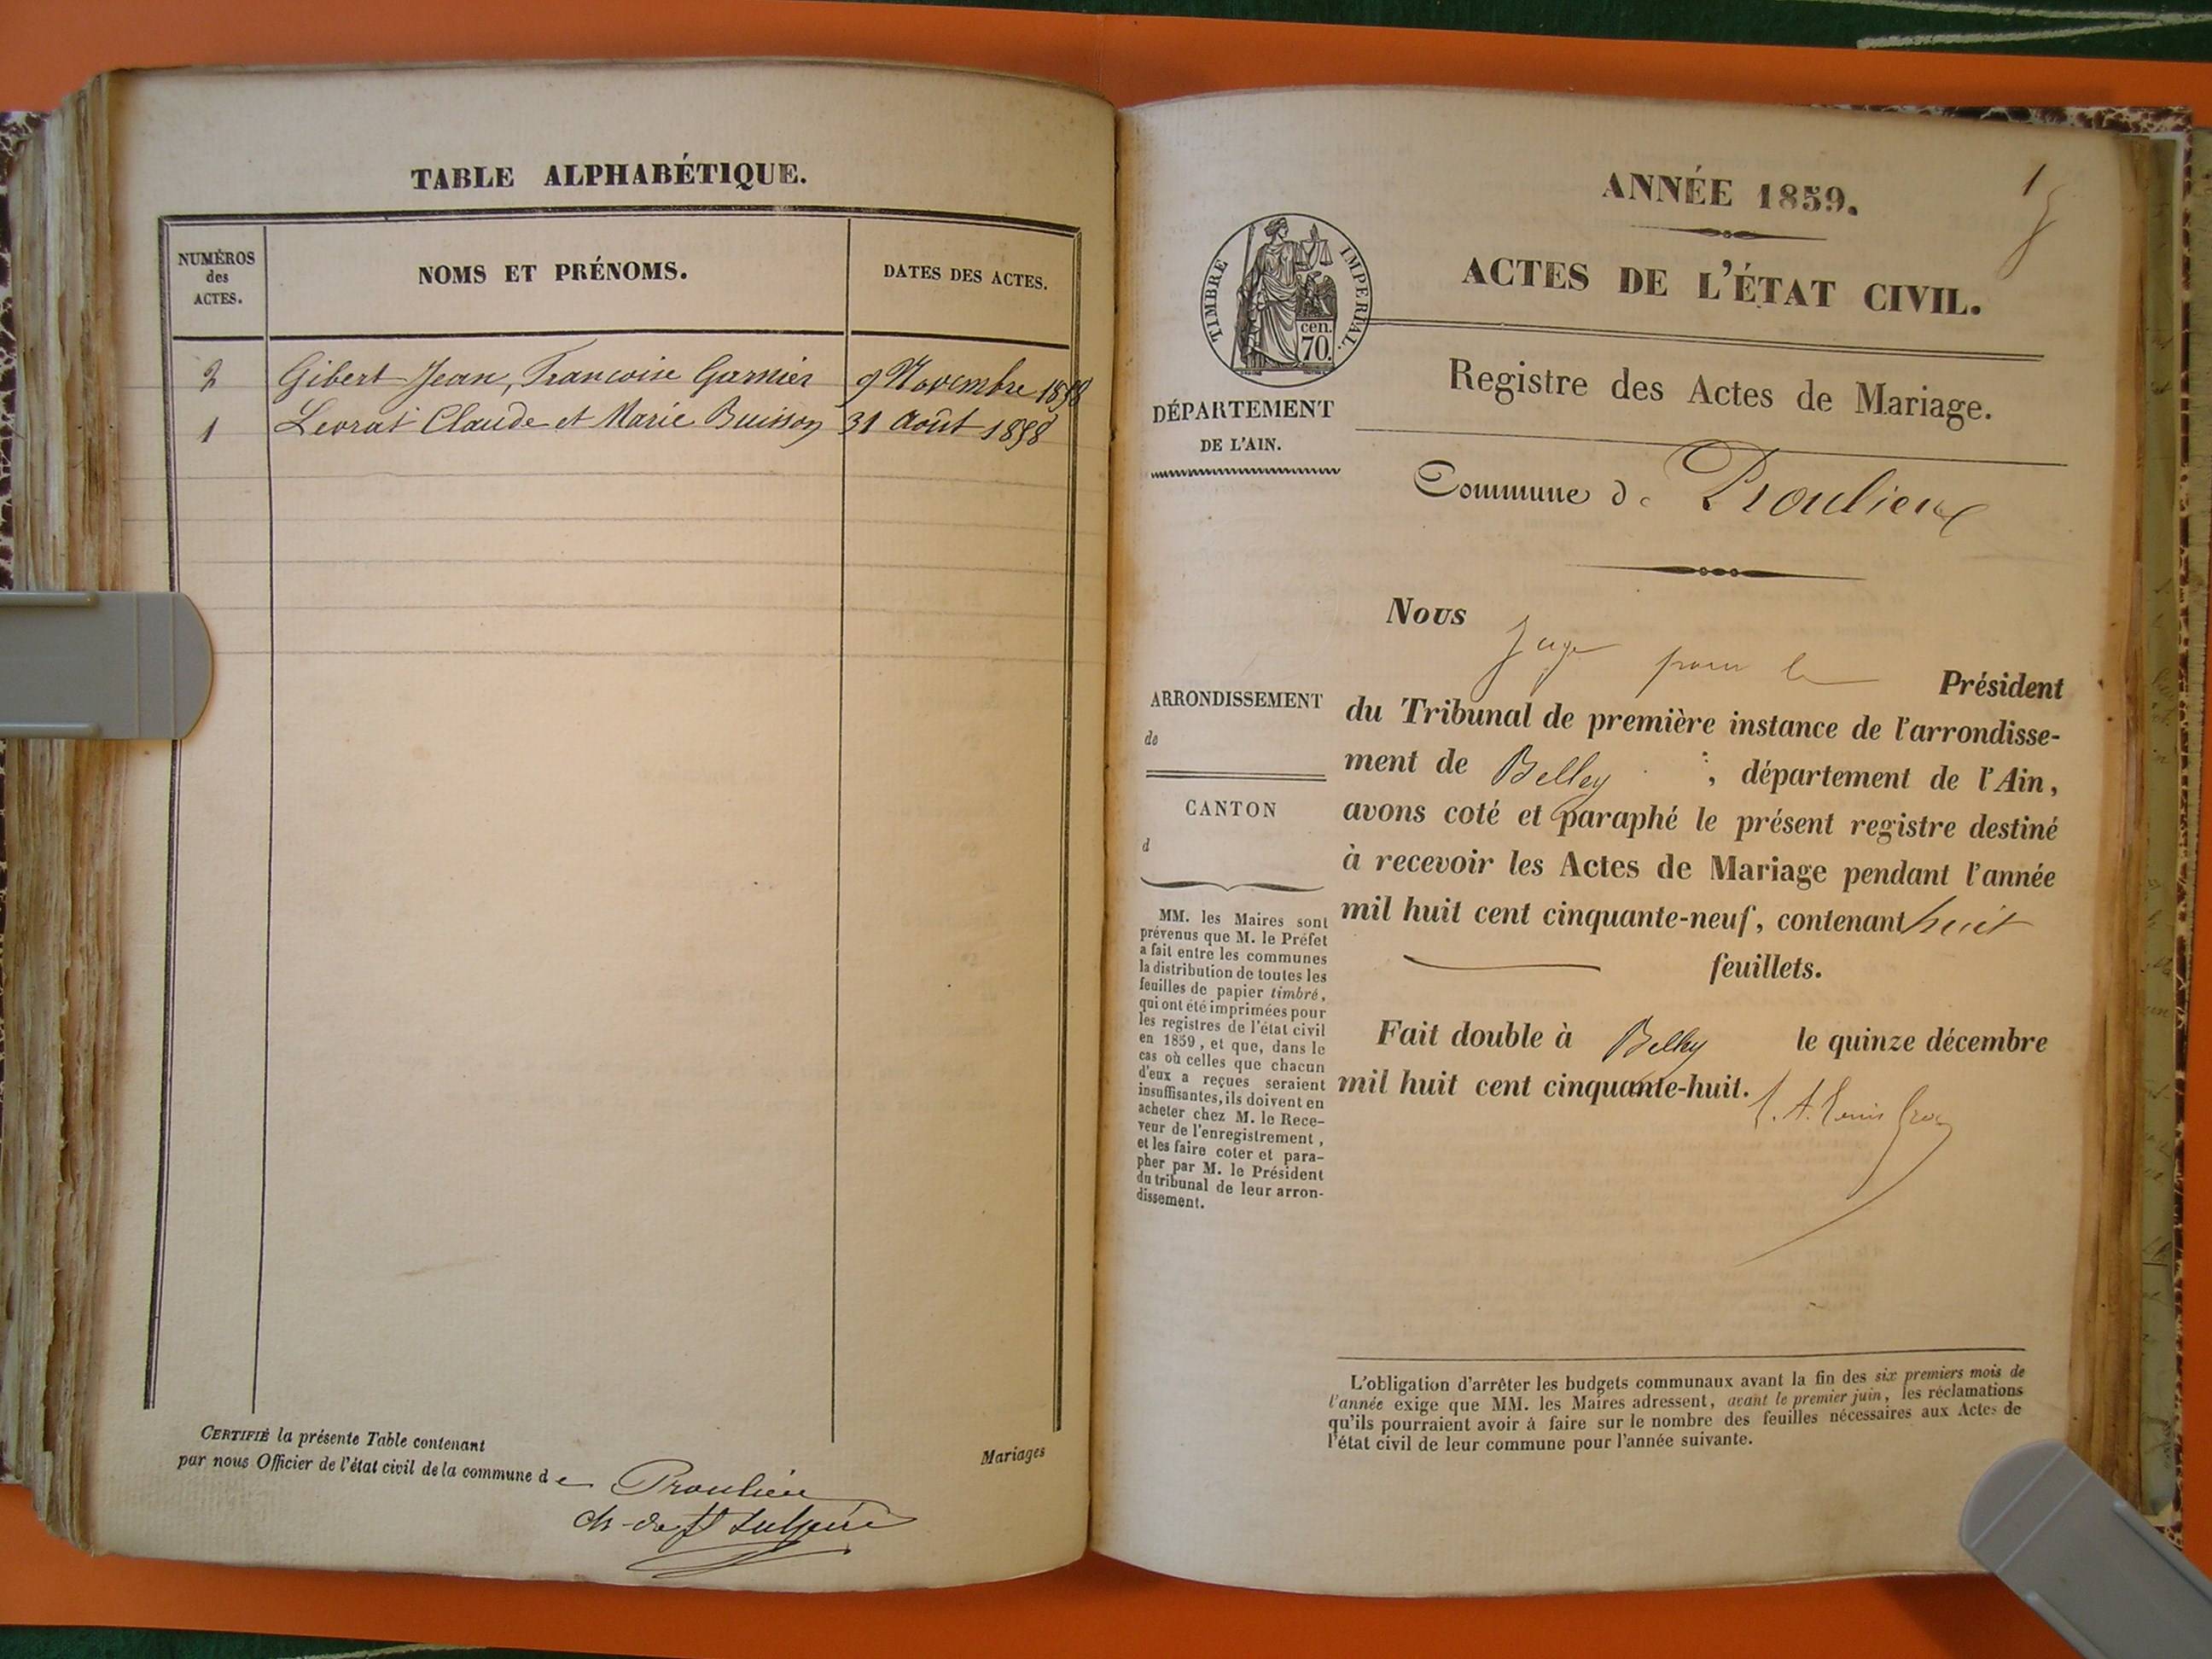 TABLE ALPHABÉTIQUE.
NUMÉROS
des
ACTES.
NOMS ET PRÉNOMS.
DATES DES ACTES.
2 Gibert Jean, Francoise Garnier 9 Novembre 1858
1 Levrat Claude et Marie Buisson 31 Août 1858
CERTIFIÉ la présente Table contenant
Mariages
par nous Officier de l'état civil de la commune de Proulieu
1
ANNÉE 1859.
ACTES DE L'ÉTAT CIVIL.
TIMBRE IMPERIAL.
cen.
70.
Registre des Actes de Mariage.
DÉPARTEMENT
DE L'AIN.
Commune de Proulieu
Nous
Juge pour le Président
ARRONDISSEMENT
de
CANTON
d
du Tribunal de première instance de l'arrondisse-
ment de Belley, département de l'Ain,
avons coté et paraphé le présent registre destiné
à recevoir les Actes de Mariage pendant l'année
mil huit cent cinquante-neuf, contenant huit
feuillets.
Fait double à Belley le quinze décembre
mil huit cent cinquante-huit.
MM. les Maires sont
prévenus que M. le Préfet
a fait entre les communes
la distribution de toutes les
feuilles de papier timbré,
qui ont été imprimées pour
les registres de l'état civil
en 1859, et que, dans le
cas où celles que chacun
d'eux a reçues seraient
insuffisantes, ils doivent en
acheter chez M. le Rece-
veur de l'enregistrement,
et les faire coter et para-
pher par M. le Président
du tribunal de leur arron-
dissement.
L'obligation d'arrêter les budgets communaux avant la fin des six premiers mois de
l'année exige que MM. les Maires adressent, avant le premier juin, les réclamations
qu'ils pourraient avoir à faire sur le nombre des feuilles nécessaires aux Actes de
l'état civil de leur commune pour l'année suivante.